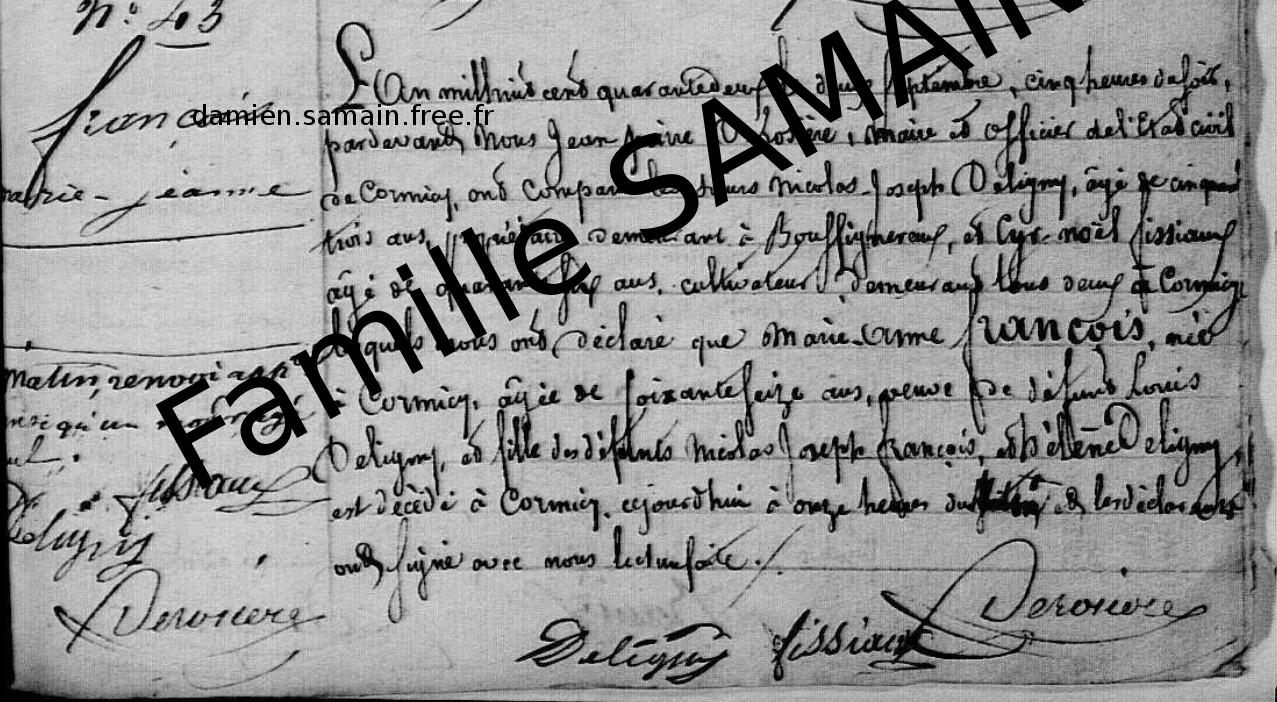 N.° 43
françois
damien.samain.free.fr
marie-jeanne
Famille SAMAIN
L'An mil huit cent quarante deux le douze Septembre, cinq heures du soir,
pardevant Nous Jean maire et officier de l'Etat civil
de Cormicy, ont comparu les sieurs Nicolas Joseph Deligny, âgé de cinquante
trois ans, propriétaire demeurant à Bouffignereux, et Cyr-noël fissiaux
âgé de quarante six ans, cultivateur, demeurant tous deux à Cormicy
lesquels nous ont déclaré que Marie-Anne françois, née
à Cormicy, âgée de soixante seize ans, veuve de défunt Louis
Deligny, et fille des défunts Nicolas Joseph françois, et hélène Deligny,
est décédé à Cormicy, cejourd'hui à onze heures du et les déclarants
ont signé avec nous lecture faite ./.
matin, renvoi
fissiaux
Deligny
Derosiere
Deligny fissiaux Derosiere